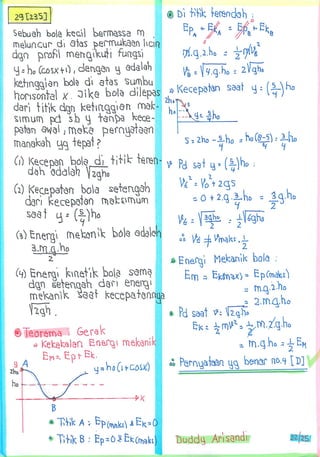 29 [I235]
Sebuah bola kecil bermassa m
meluncur di atas permukaan licin
dgn profil mengikuti fungsi
y = ho (cosx+1), dengan y adalah
ketinggian bola di atas sumbu
horisontal x. Jika bola dilepas
dari titik dgn ketinggian mak-
simum pd sb y tanpa kece-
patan awal, maka pernyataan
manakah yg tepat?
(1) Kecepan bola di titik teren-
dah adalah √2gho
(2) Kecepatan bola setengah
dari kecepatan maksimum
saat y = (5/4)ho
(3) Energi mekanik bola adalah
3.m.g.ho
2
(4) Energi kinetik bola sama
dgn setengah dari energi
mekanik saat kecepatannya
√2gh.
Teorema Gerak
* Kekekalan Energi mekanik
Em = Ep + Ek.
y A
y = ho(1+cosx)
2ho
ho
x
B
* Titik A : Ep(maks) & Ek=0
* Titik B : Ep=0 & Ek(maks)
* Di titik terendah :
EpA + EkA = EpB + EkB
m.g.2.ho = 1/2 mVB²
VB = √4.g.ho = 2√gho
Kecepatan saat y = (5/4)ho
2ho
ho
y = 5/4 ho
S = 2ho - 5/4 ho = ho(8-5)/4 = 3/4 ho
Pd saat y = (5/4)ho :
Vt² = Vo² + 2gs
= 0 + 2.g.3/4.ho = 3g.ho/2
∴ Vt ≠ Vmaks.1/2
* Energi Mekanik bola :
Em = Ek(max) = Ep(maks)
= m.g.2ho
= 2.m.g.ho
* Pd saat V = √2gho
Ek = 1/2 mV² = 1/2.m.2g.ho
= m.g.ho = 1/2 EM
∴ Pernyataan yg benar no.4 [D]
Duddy Arisandi